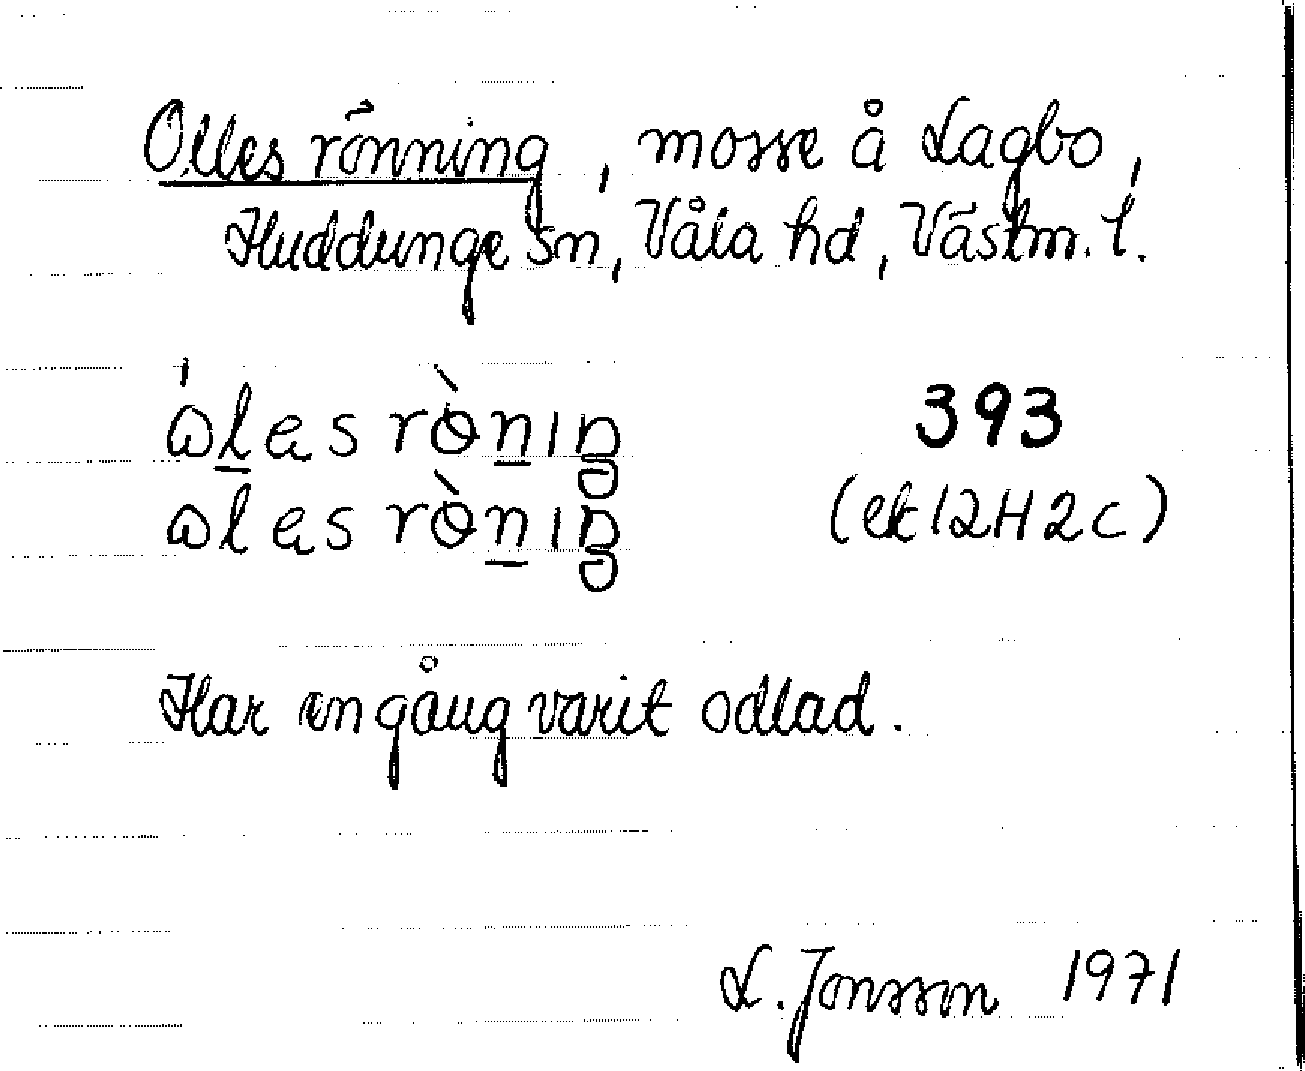 Olles rönning, mosse å Lagbo,
Huddunge sn, Våla hd, Västm. l.
ὠlⱥs rònıŋ 393
ωlⱥs rònıŋ (ek 12H2c)
Har en gång varit odlad.
L. Jonsson 1971